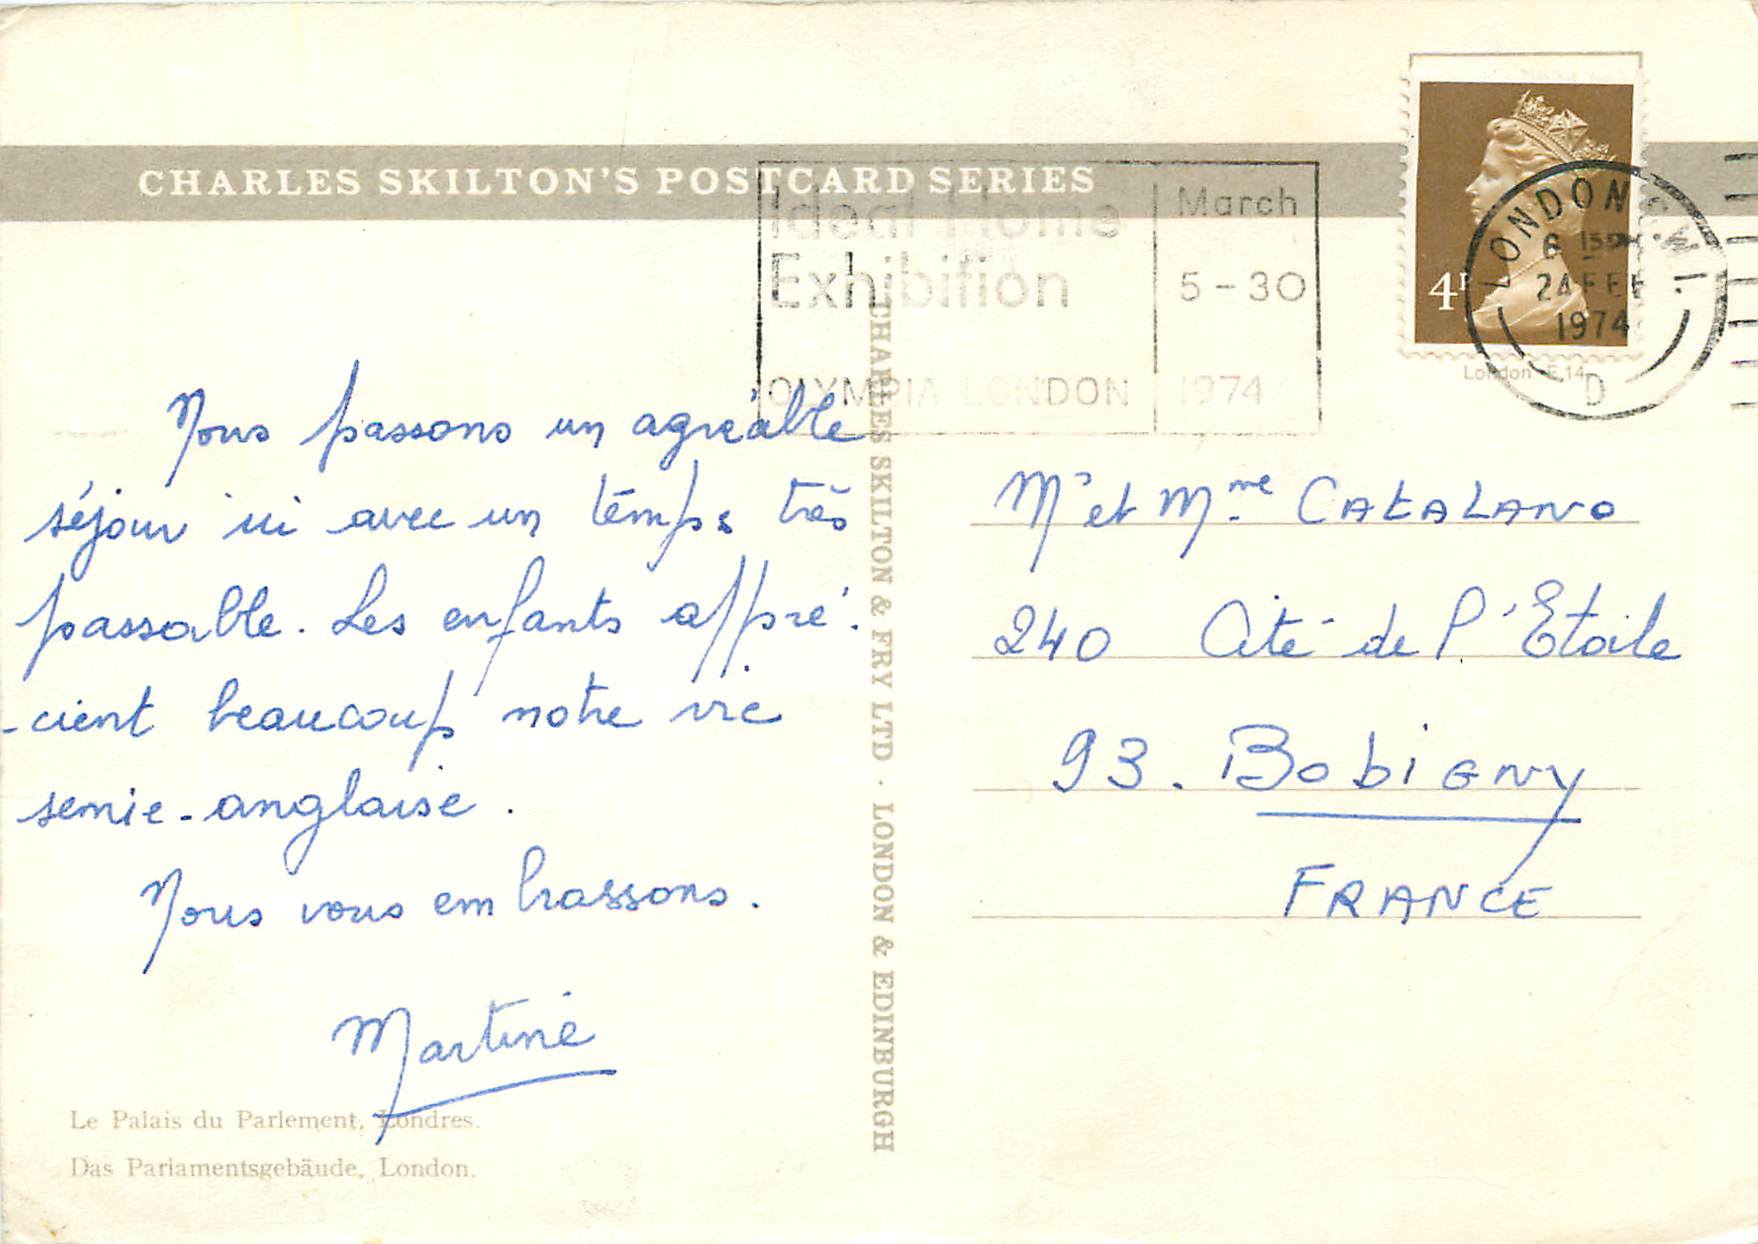 CHARLES SKILTON'S POSTCARD SERIES
Ideal Home
Exhibition
OLYMPIA LONDON
March
5-30
1974
4P
LONDON S.W.1.
6 15PM
24 FEB
1974
D
London E.14
Nous passons un agréable
séjour ici avec un temps très
passable. Les enfants appré-
-cient beaucoup notre vie
semie-anglaise.
Nous vous embrassons.
Martine
Le Palais du Parlement, Londres.
Das Parlamentsgebäude, London.
CHARLES SKILTON & FRY LTD · LONDON & EDINBURGH
Mr et Mme CATALANO
240 Cité de l'Etoile
93. Bobigny
FRANCE